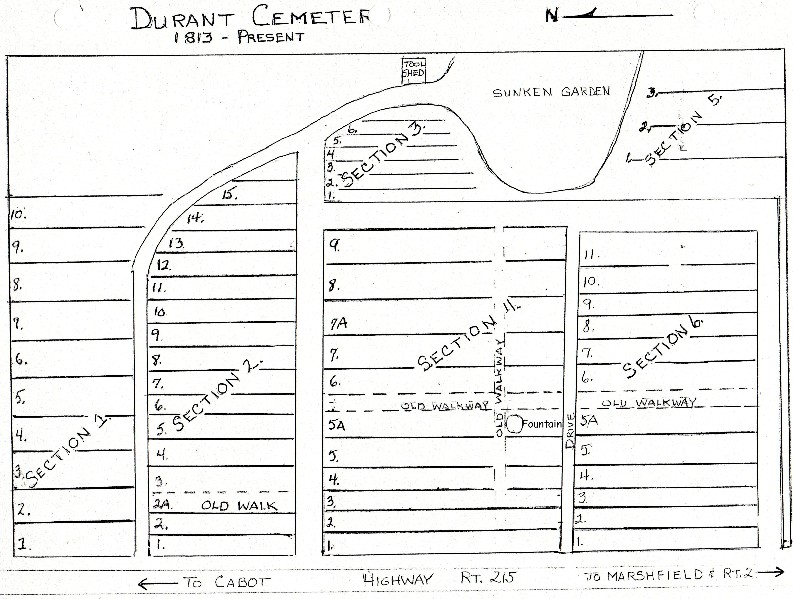 DURANT CEMETER
1813 - PRESENT
N
TOOL
SHED
SUNKEN GARDEN
3.
2.
1.
SECTION 5.
6.
5.
4.
3.
2.
1.
SECTION 3.
10.
9.
8.
7.
6.
5.
4.
3.
2.
1.
SECTION 1.
15.
14.
13.
12.
11.
10
9.
8.
7.
6.
5.
4.
3.
2A.
OLD WALK
2.
1.
SECTION 2.
9.
8.
7A
7.
6.
OLD WALKWAY
5A
5.
4.
3.
2.
1.
SECTION 4.
OLD WALKWAY
Fountain
DRIVE
11.
10.
9.
8.
7.
6.
OLD WALKWAY
5A
5.
4.
3.
2.
1.
SECTION 6.
TO CABOT
HIGHWAY RT. 215
TO MARSHFIELD & RT. 2